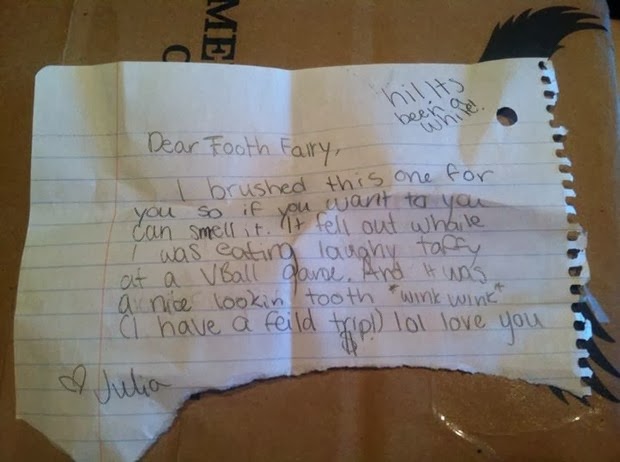 ME
C
hi! Its
been a
while!
Dear Tooth Fairy,
I brushed this one for
you so if you want to you
can smell it. It fell out whaile
I was eating laughy taffy
at a VBall game. And it was
a nice lookin tooth *wink wink*
(I have a feild trip!) lol love you
$
♡ Julia